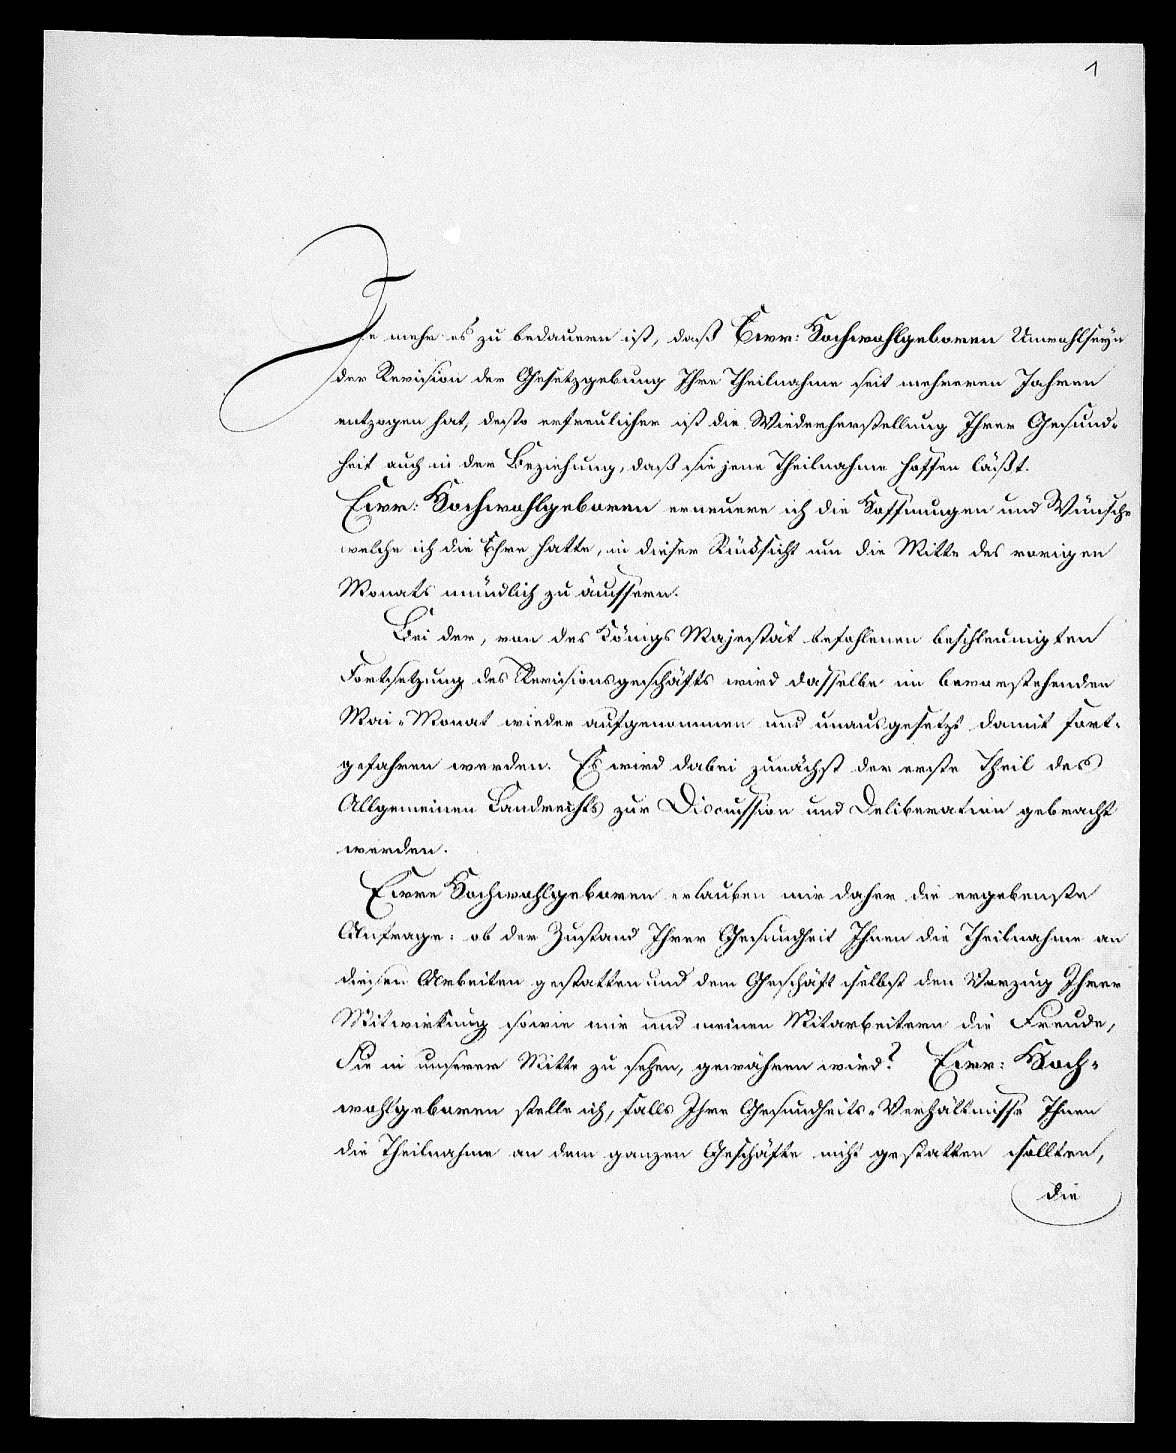 1
Je mehr es zu bedauern ist, daß Ewr: Hochwohlgeboren Unwohlseyn
der Revision der Gesetzgebung Ihre Theilnahme seit mehreren Jahren
entzogen hat, desto erfreulicher ist die Wiederherstellung Ihrer Gesund-
heit auch in der Beziehung, daß sie jene Theilnahme hoffen läßt.
Ewr: Hochwohlgeboren erneuere ich die Hoffnungen und Wünsche
welche ich die Ehre hatte, in dieser Rücksicht um die Mitte des vorigen
Monats mündlich zu äussern.
Bei der, von des Königs Majestät befohlenen beschleunigten
Fortsetzung des Revisionsgeschäfts wird dasselbe im bevorstehenden
Mai-Monat wieder aufgenommen und unausgesetzt damit fort-
gefahren werden. Es wird dabei zunächst der erste Theil des
Allgemeinen Landrechts zur Discussion und Deliberation gebracht
werden.
Ewre Hochwohlgeboren erlauben mir daher die ergebenste
Anfrage: ob der Zustand Ihrer Gesundheit Ihnen die Theilnahme an
diesen Arbeiten gestatten und dem Geschäft selbst den Vorzug Ihrer
Mitwirkung sowie mir und meinen Mitarbeitern die Freude,
Sie in unserer Mitte zu sehen, gewähren wird? Ewr: Hoch-
wohlgeboren stelle ich, falls Ihre Gesundheits-Verhältnisse Ihnen
die Theilnahme an dem ganzen Geschäfte nicht gestatten sollten,
die